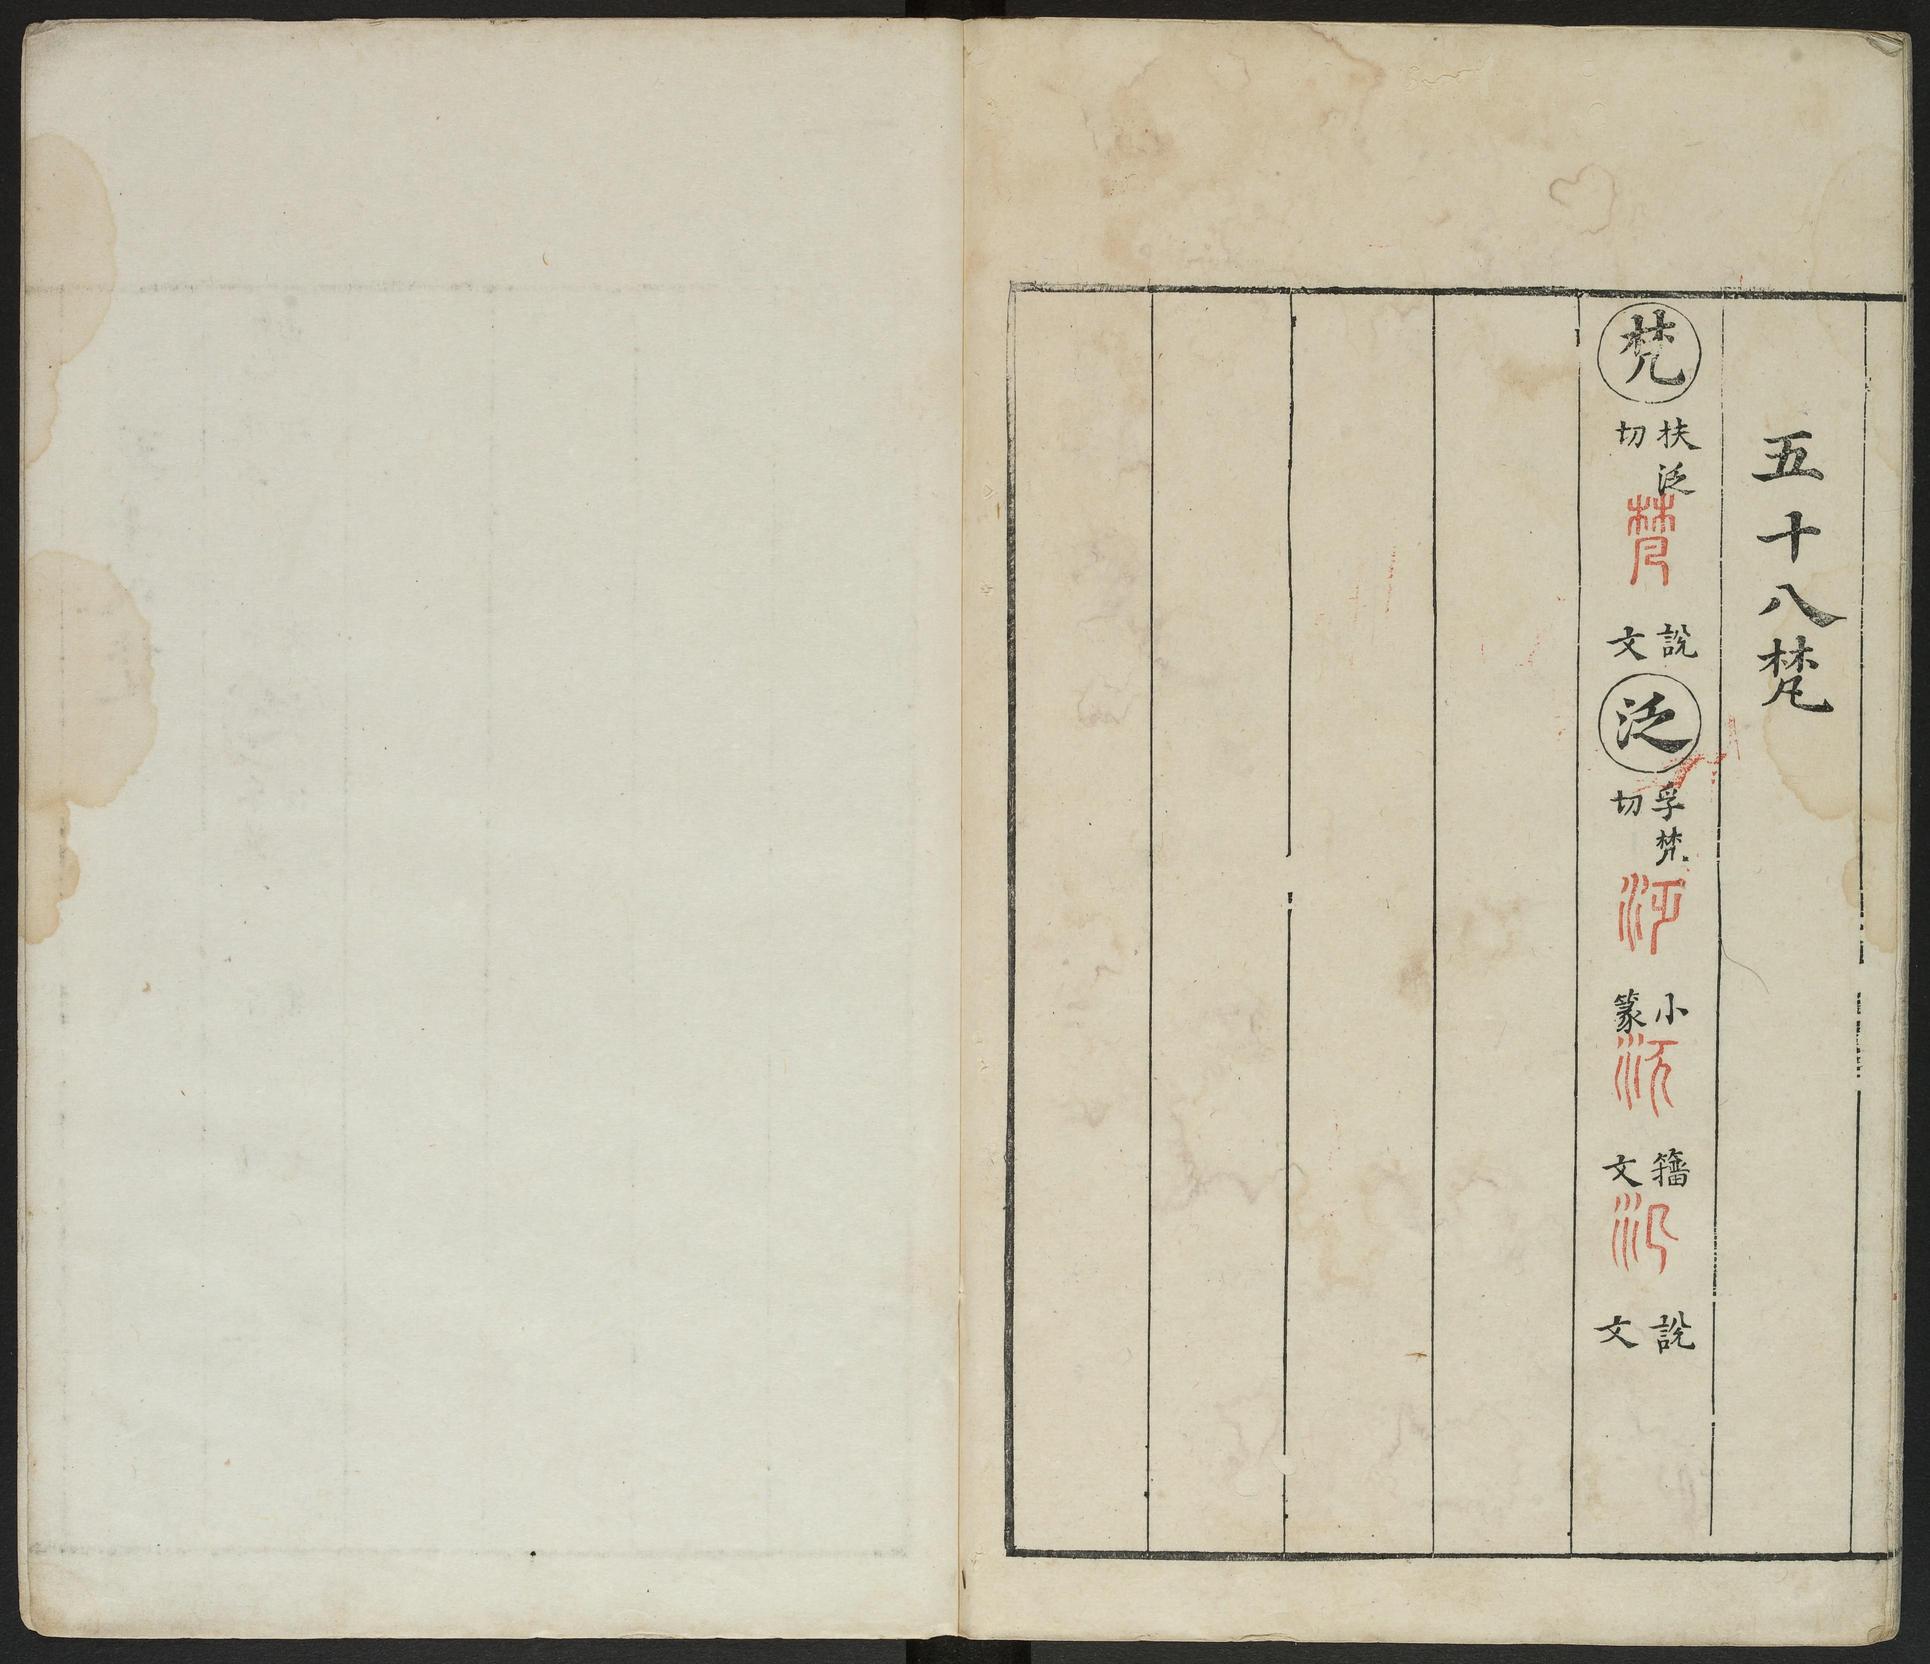 五十八梵
梵扶泛切梵說文泛孚梵切泛小篆汎籀文氾說文